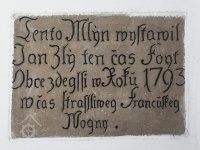 Tento Mlýn wystawil
Jan Zlý ten čas Fogt
Obce zdegssi w Roku 1793
w čas strassliweg Francuskeg
Wogny .